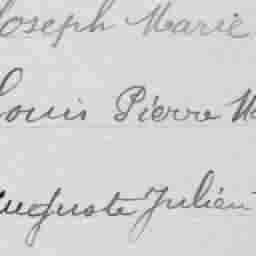 Joseph Marie
Louis Pierre M
Auguste Julien